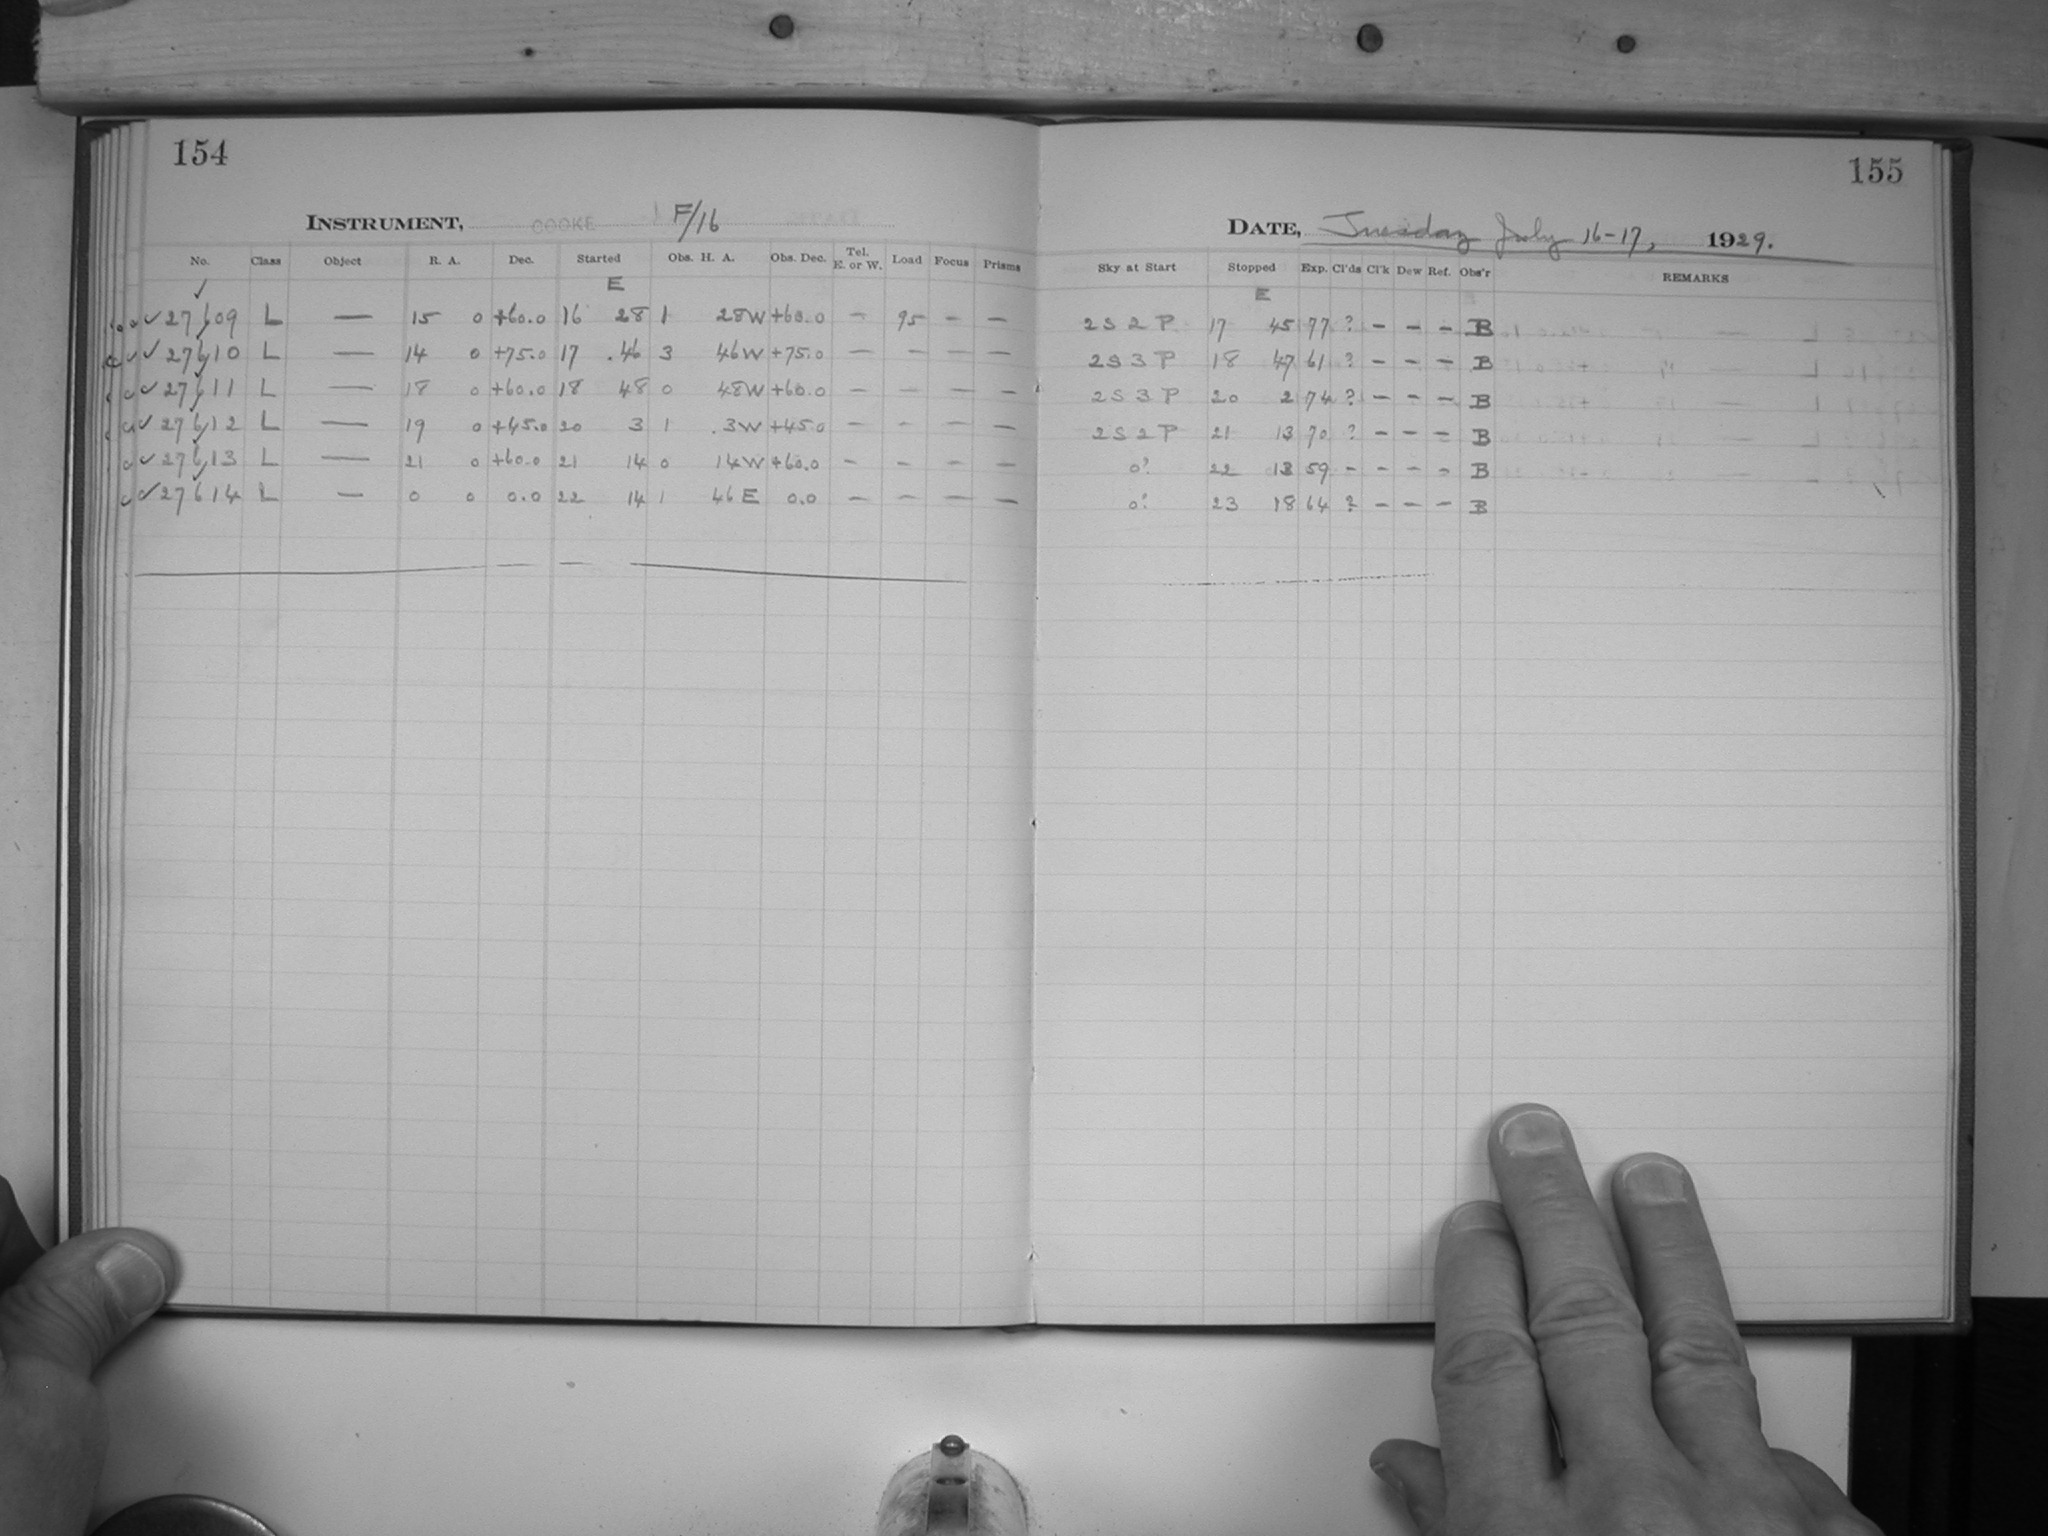 154
INSTRUMENT, COOKE F/16
No. Class Object R. A. Dec. Started Obs. H. A. Obs. Dec. Tel. E. or W. Load Focus Prisms
E
27609 L — 15 0 +60.0 16 28 1 28W +60.0 — 95 — —
27610 L — 14 0 +75.0 17 46 3 46W +75.0 — — — —
27611 L — 18 0 +60.0 18 48 0 48W +60.0 — — — —
27612 L — 19 0 +45.0 20 3 1 3W +45.0 — — — —
27613 L — 21 0 +60.0 21 14 0 14W +60.0 — — — —
27614 L — 0 0 0.0 22 14 1 46E 0.0 — — — —
155
DATE, Tuesday July 16-17, 1929.
Sky at Start Stopped Exp. Cl'ds Cl'k Dew Ref. Obs'r REMARKS
E
2S2P 17 45 77 ? — — — B
2S3P 18 47 61 ? — — — B
2S3P 20 2 74 ? — — — B
2S2P 21 13 70 ? — — — B
0? 22 13 59 — — — — B
0? 23 18 64 ? — — — B